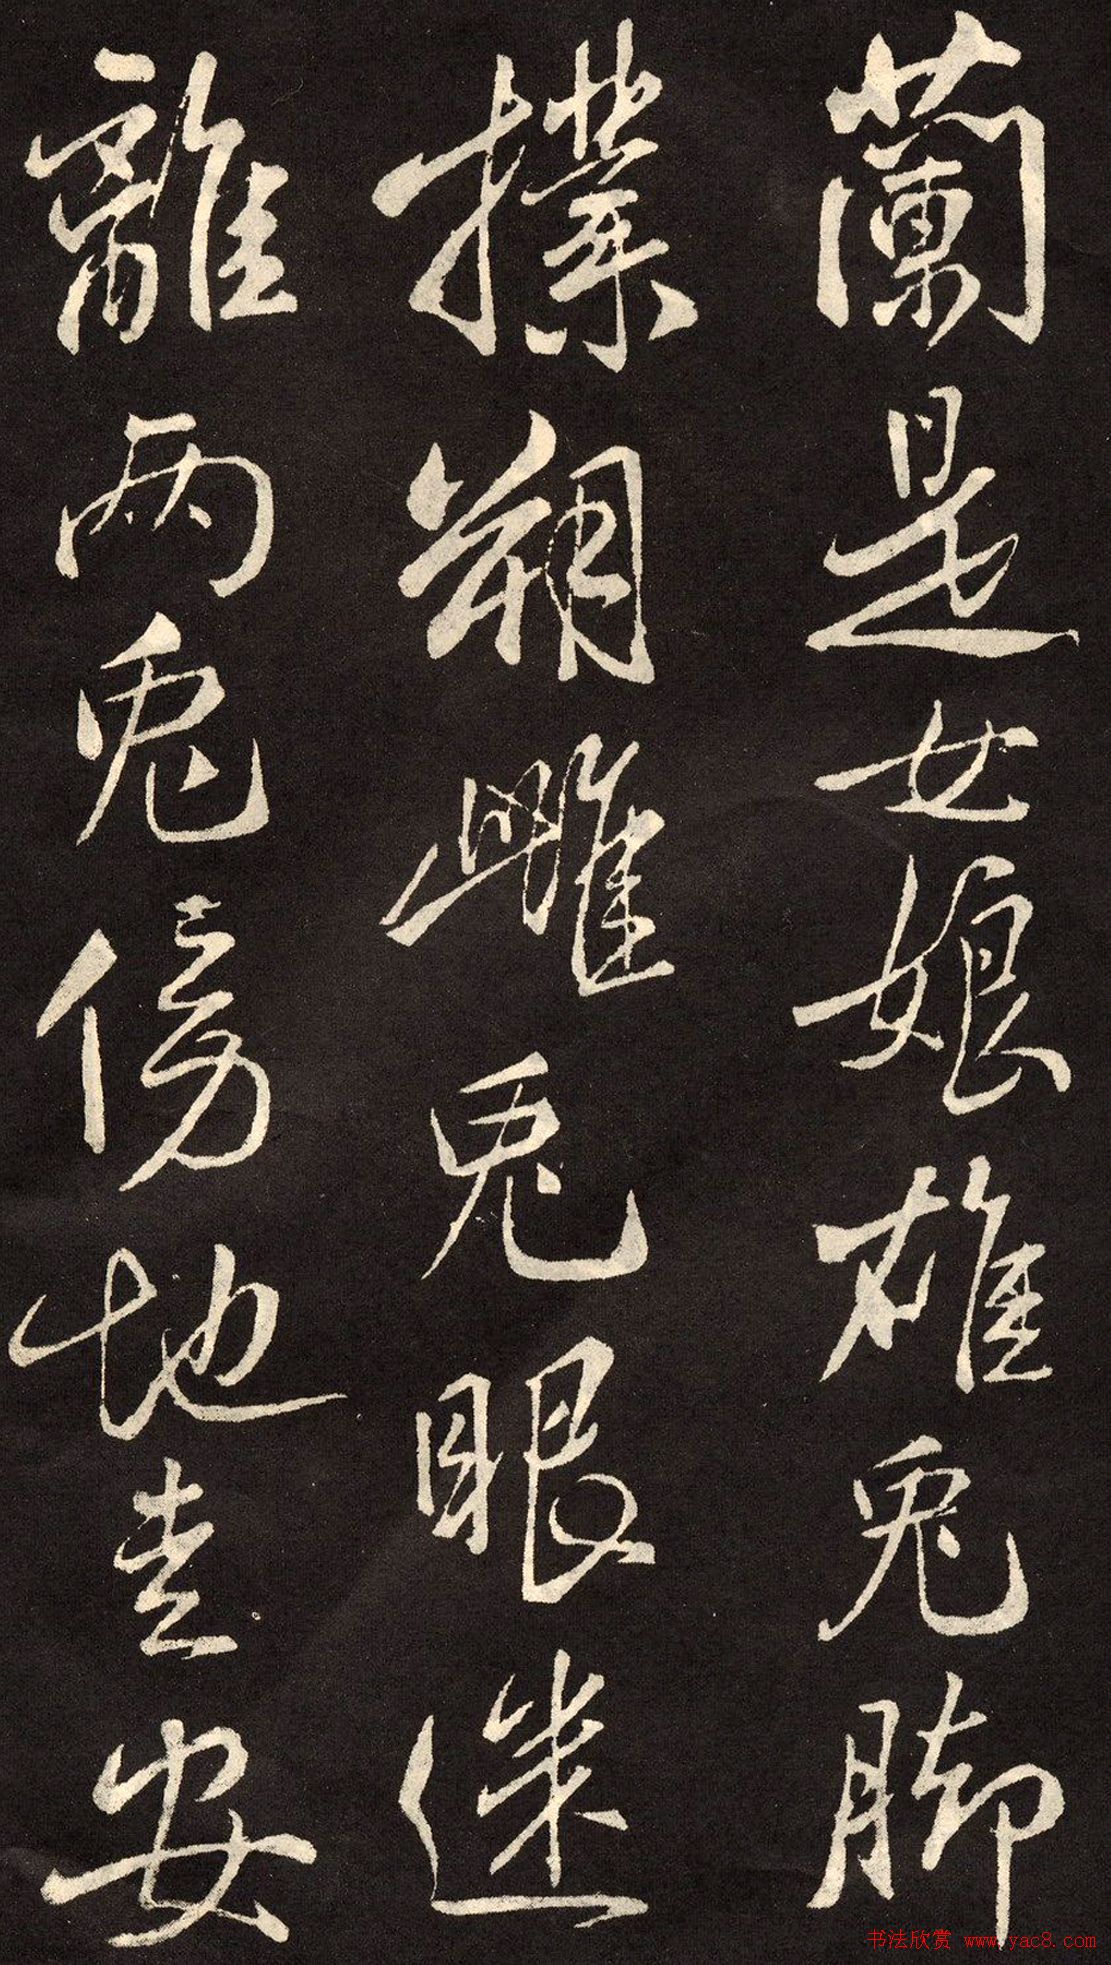 蘭是女娘雄兎脚
撲朔雌兎眼迷
離两兎傍地走安
书法欣赏 www.yac8.com